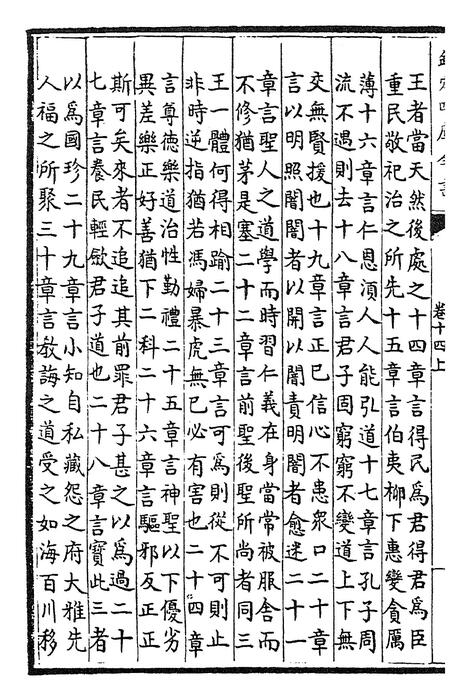 欽定四庫全書
卷十四上
王者當天然後處之十四章言得民為君得君為臣
重民敬祀治之所先十五章言伯夷柳下惠變貪厲
薄十六章言仁恩湏人人能引道十七章言孔子周
流不遇則去十八章言君子固窮窮不變道上下無
交無賢援也十九章言正己信心不患衆口二十章
言以明照闇闇者以開以闇責明闇者愈迷二十一
章言聖人之道學而時習仁義在身當常被服舍而
不修猶茅是塞二十二章言前聖後聖所尚者同三
王一體何得相踰二十三章言可為則從不可則止
非時逆指猶若馮婦暴虎無已必有害也二十四章
言尊徳樂道治性勤禮二十五章言神聖以下優劣
異差樂正好善猶下二科二十六章言驅邪反正正
斯可矣來者不追追其前罪君子甚之以為過二十
七章言養民輕斂君子道也二十八章言寳此三者
以為國珍二十九章言小知自私藏怨之府大雅先
人福之所聚三十章言教誨之道受之如海百川移